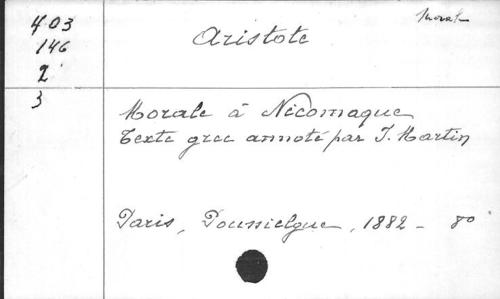 403
146
2
3
Morale
Aristote
Morale à Nicomaque
Texte grec annoté par J. Martin
Paris, Poussielgue, 1882 - 8º